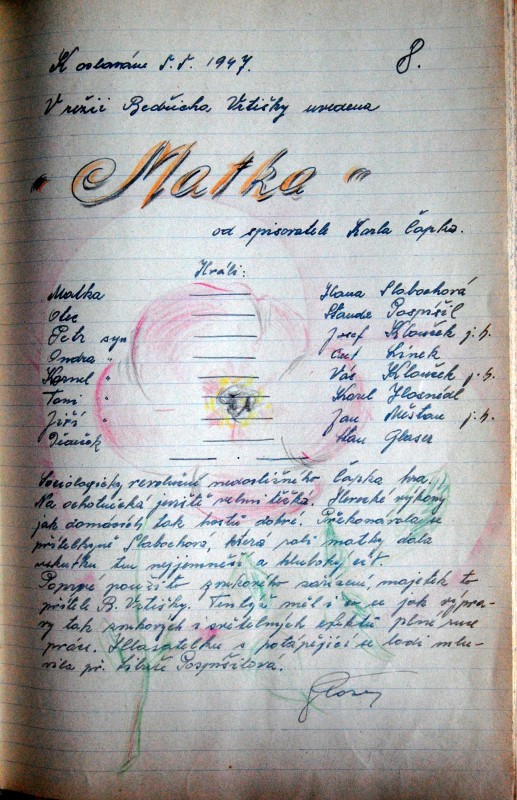 K oslavám 1. 5. 1947. 8.
V režii Bedřicha Vrtišky uvedena
"Matka"
od spisovatele Karla Čapka.
Hráli:
Matka ——— Hana Slabochová
Otec ——— Standa Pospíšil
Petr syn ——— Josef Klouček j. h.
Ondra " ——— Linek
Kornel " ——— Klouček j. h.
Toni " ——— Karel
Jiří " ——— Jan Měšťan j. h.
Dědeček ——— Stan Glaser
Sociologicky, revoluční nedostižného Čapka hra.
Na ochotnická jeviště velmi těžká. Herecké výkony
jak domácích, tak hostů dobré. Překonávala se
přítelkyně Slabochová, která roli matky dala
vskutku ten nejjemnější a hluboký cit.
Poprvé použito zvukového zařízení, majetek to
přítele B. Vrtišky. Tentýž měl i se jak výpra-
vy tak zvukových i světelných efektů plné ruce
práce. Hlasatelku s potápějící se lodi mlu-
vila př. Pospíšilova.